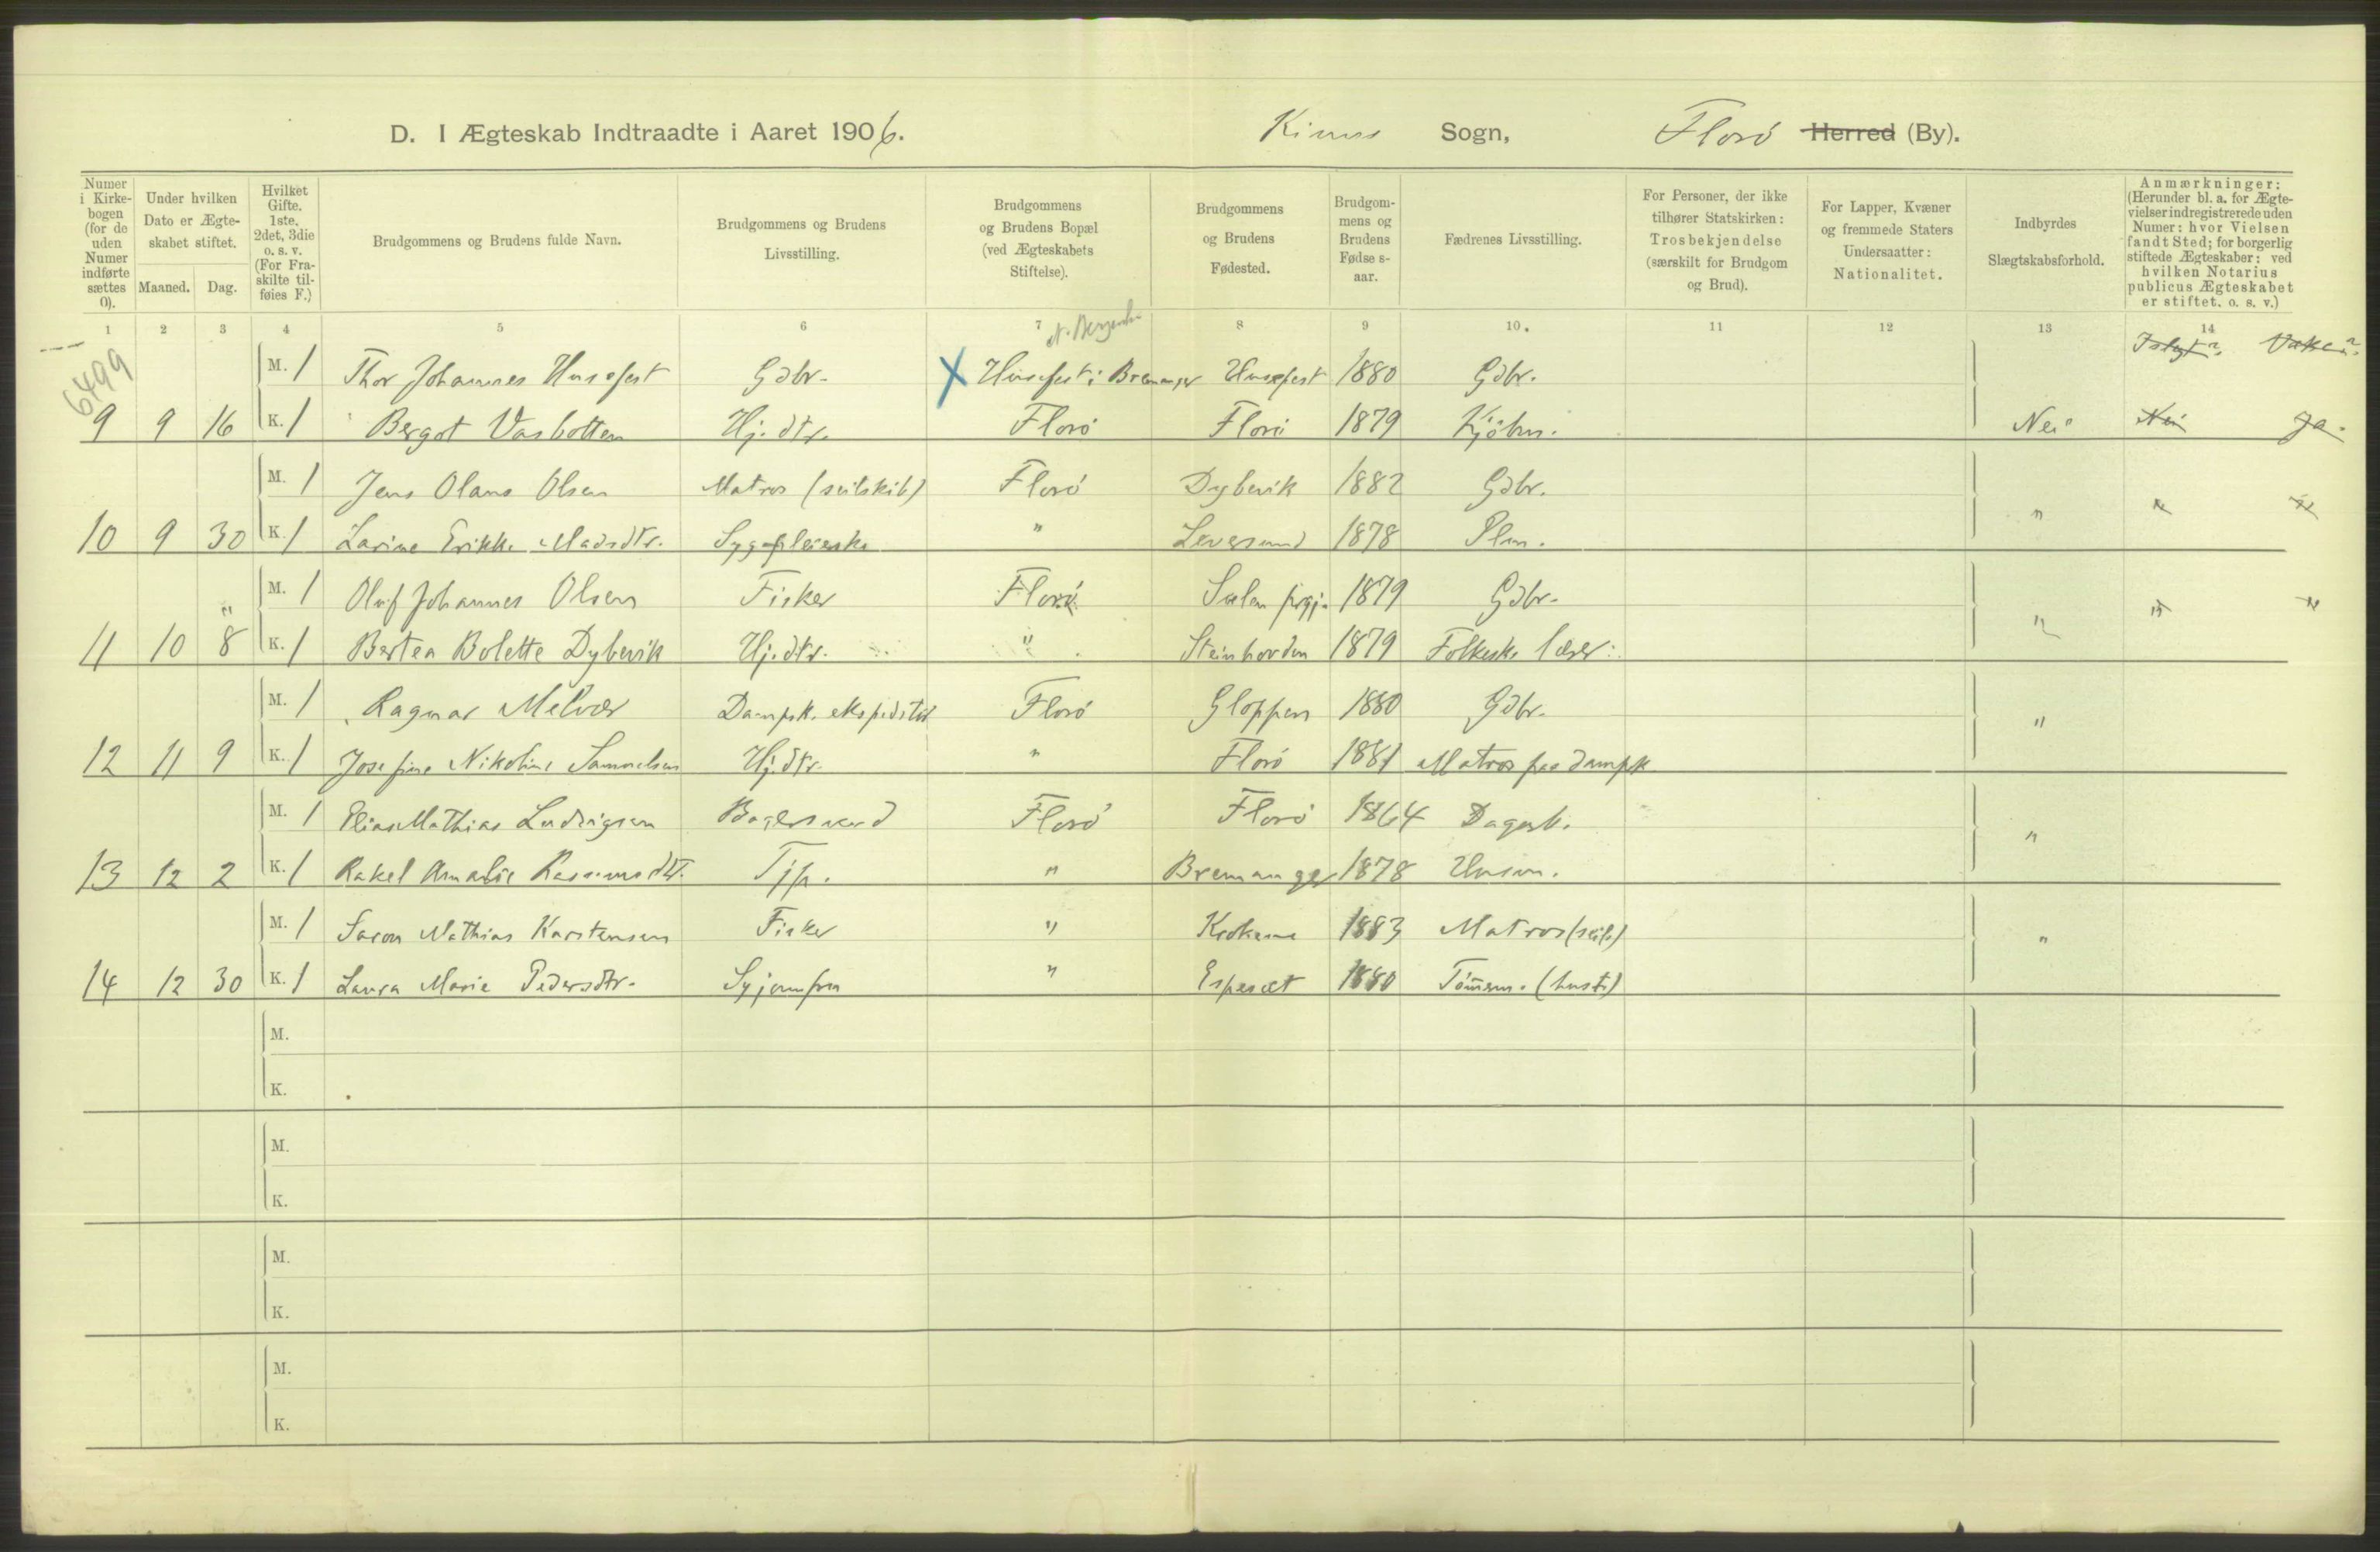 D. I Ægteskab Indtraadte i Aaret 1906. Kinns Sogn, Florö Herred (By).
Numer i Kirkebogen (for de uden Numer indførte sættes 0).
Under hvilken Dato er Ægteskabet stiftet. Maaned. Dag.
Hvilket Gifte. 1ste, 2det, 3die o. s. v. (For Fraskilte tilføies F.)
Brudgommens og Brudens fulde Navn.
Brudgommens og Brudens Livsstilling.
Brudgommens og Brudens Bopæl (ved Ægteskabets Stiftelse).
Brudgommens og Brudens Fødested.
Brudgommens og Brudens Fødsesaar.
Fædrenes Livsstilling.
For Personer, der ikke tilhører Statskirken: Trosbekjendelse (særskilt for Brudgom og Brud).
For Lapper, Kvæner og fremmede Staters Undersaatter: Nationalitet.
Indbyrdes Slægtskabsforhold.
Anmærkninger: (Herunder bl. a. for Ægtevielser indregistrerede uden Numer: hvor Vielsen fandt Sted; for borgerlig stiftede Ægteskaber: ved hvilken Notarius publicus Ægteskabet er stiftet. o. s. v.)
1 2 3 4 5 6 7 8 9 10. 11 12 13 14
6499
M. 1 Thor Johannes Husefest Gdbr. X Husefest i Bremanger Husefest 1880 Gdbr.
9 9 16 K. 1 Bergot Vasbotten Hj. dtr. Florö Florö 1879 Kjöbm. Nei Nei Ja.
M. 1 Jens Olans Olsen Matros (seilskib) Florö Dybevik 1882 Gdbr.
10 9 30 K. 1 Larine Erikke Madsdtr. Sygepleierske " Leversund 1878 Plm. " " "
M. 1 Oluf Johannes Olsen Fisker Florö 1879 Gdbr.
11 10 8 K. 1 Bertea Bolette Dybevik Hj. dtr. " Steinhovden 1879 Folkesk. lærer. " " "
M. 1 Ragnar Melvær Dampsk. ekspeditör Florö Gloppen 1880 Gdbr.
12 11 9 K. 1 Josefine Nikoline Samuelsen Hj. dtr. " Florö 1881 Matros paa dampsk "
M. 1 Elias Mathias Ludvigsen Bagersvend Florö Florö 1864 Dagarb.
13 12 2 K. 1 Rakel Amalie Rasmusdtr. Tjp. " Bremanger 1878 Husm. "
M. 1 Mathias Karstensen Fisker " 1883 Matros (seils)
14 12 30 K. 1 Laura Marie Pedersdtr. Syjomfru " Espeset 1880 Tömm. (hust.) "
M.
K.
M.
K.
M.
K.
M.
K.